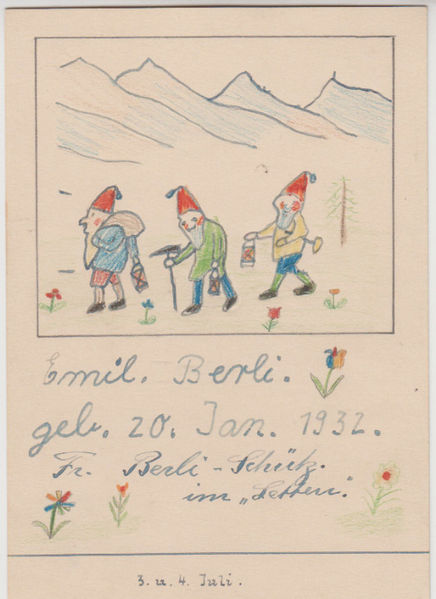 Emil. Berli.
geb. 20. Jan. 1932.
Fr. Berli-Schütz.
im „Letten".
3. u. 4. Juli.